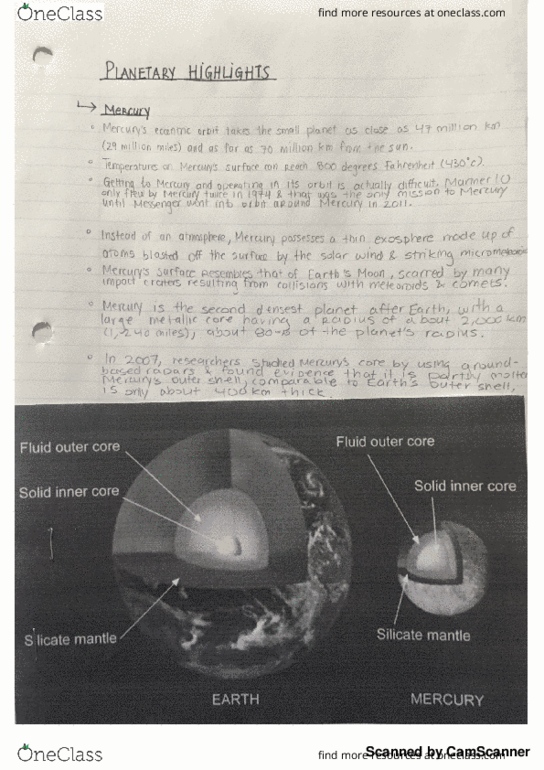 OneClass
find more resources at oneclass.com
PLANETARY HIGHLIGHTS
Mercury
Mercury's eccentric orbit takes the small planet as close as 47 million km
(29 million miles) and as far as 70 million km from the sun.
Temperatures on Mercury's surface can reach 800 degrees Fahrenheit (430°C).
Getting to Mercury and operating in its orbit is actually difficult. Mariner 10
only flew by Mercury twice in 1974 & that was the only mission to Mercury
until Messenger went into orbit around Mercury in 2011.
Instead of an atmosphere, Mercury possesses a thin exosphere made up of
atoms blasted off the surface by the solar wind & striking
Mercury's surface resembles that of Earth's Moon, scarred by many
impact craters resulting from collisions with meteoroids & comets.
Mercury is the second densest planet after Earth, with a
large metallic core having a radius of about 2,000 km
miles), about of the planet's radius.
In 2007, researchers studied Mercury's core by using ground-
based radars & found evidence that it is partly molten
Mercury's outer shell, comparable to Earth's outer shell,
is only about 400 km thick.
Fluid outer core
Fluid outer core
Solid inner core
Solid inner core
Silicate mantle
Silicate mantle
EARTH
MERCURY
OneClass
find more resources at oneclass.com
Scanned by CamScanner